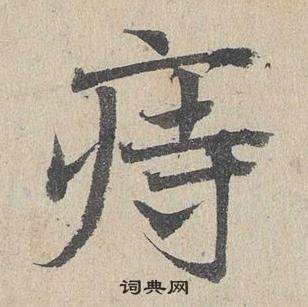 痔
词典网